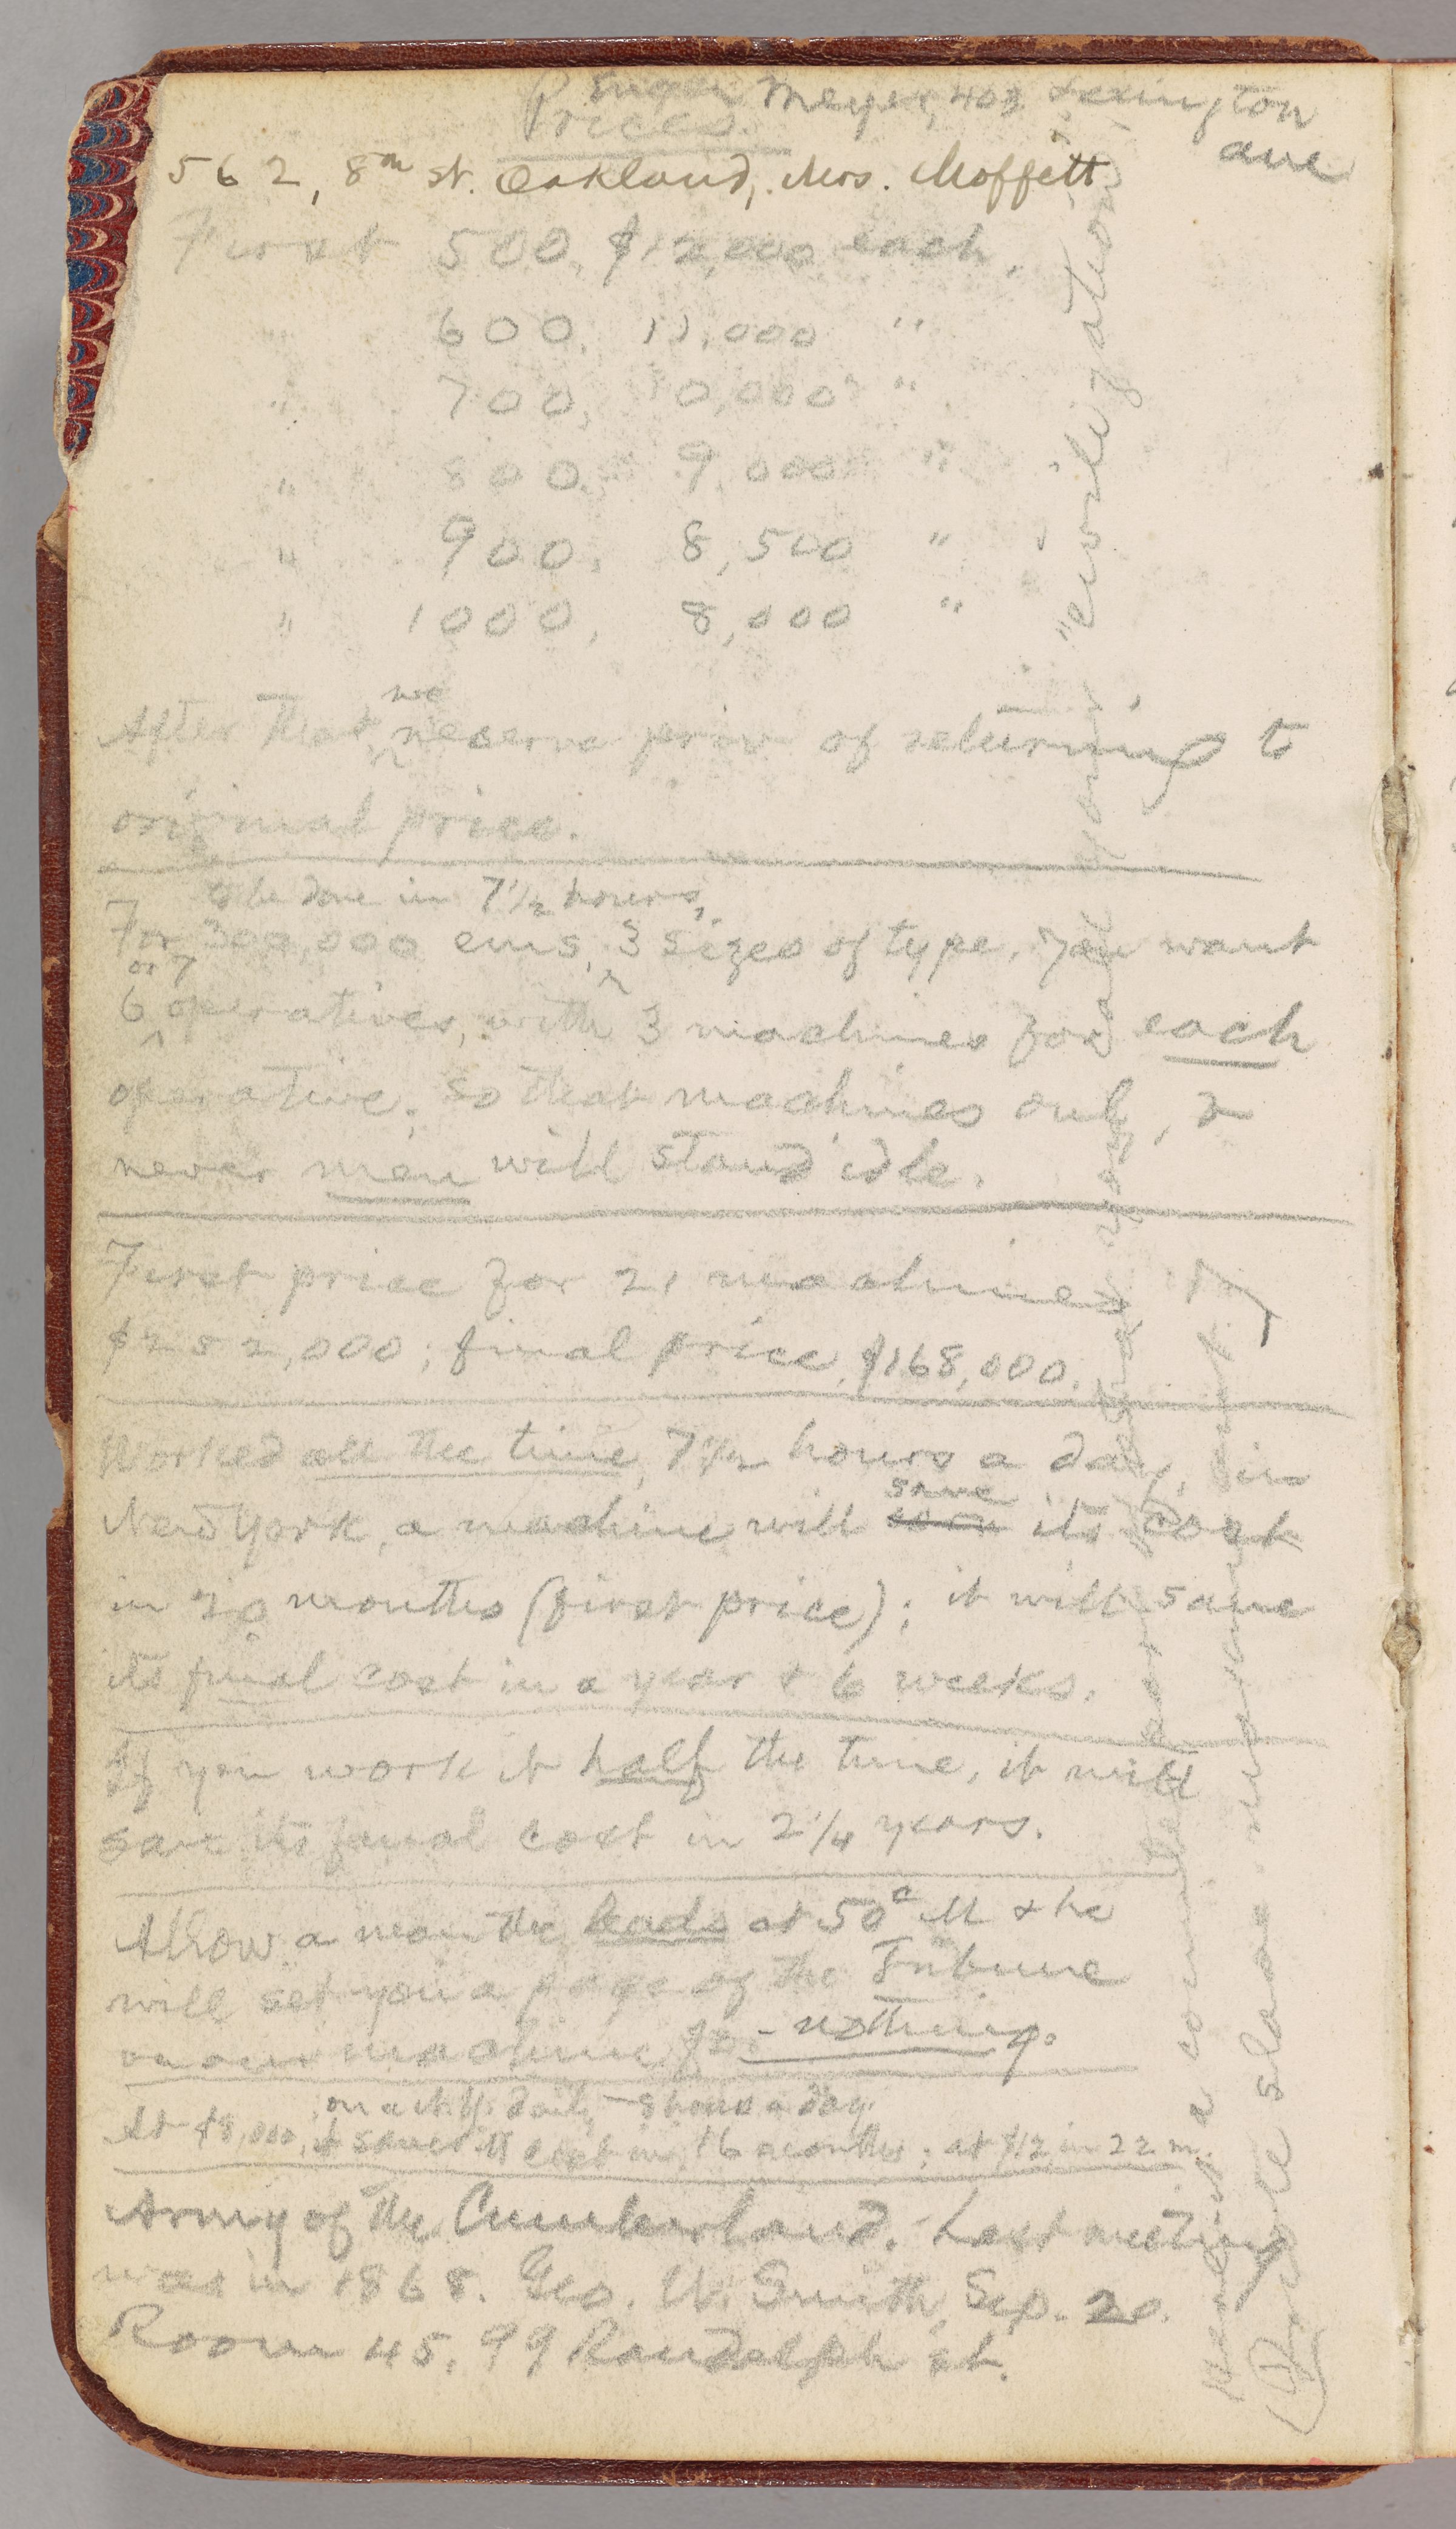 Meyer, 403 Lexington
ave
Prices.
562, 8th st. Oakland, Mrs. Moffett
First 500, $12,000 each.
600, 11,000 "
" 700, 10,000 "
" 800, 9,000 "
" 900, 8,500 "
" 1000, 8,000 "
we
After that, reserve priv of returning to
original price.
to be done in 7 1/2 hours,
For 300,000 ems, 3 sizes of type, you want
or 7
6 operatives, with 3 machines for each
operative. So that machines only, &
never men will stand idle.
First price for 21 machines
$252,000; final price, $168,000.
Worked all the time, 7 1/2 hours a day, in
save
New York, a machine will earn its cost
in 20 months (first price); it will save
its final cost in a year & 6 weeks.
If you work it half the time, it will
save its final cost in 2 1/4 years.
Allow a man the leads at 50c M & he
will set you a page of the Tribune
on our machine for - nothing.
on a N.Y. daily - 8 hours a day.
At $8,000, it saves its cost in 16 months; at $12 in 22 m.
Army of the Cumberland. Last meeting
was in 1868. Geo. W. Smith, Sep. 20.
Room 45, 99 Randolph st.
"civilization
slave